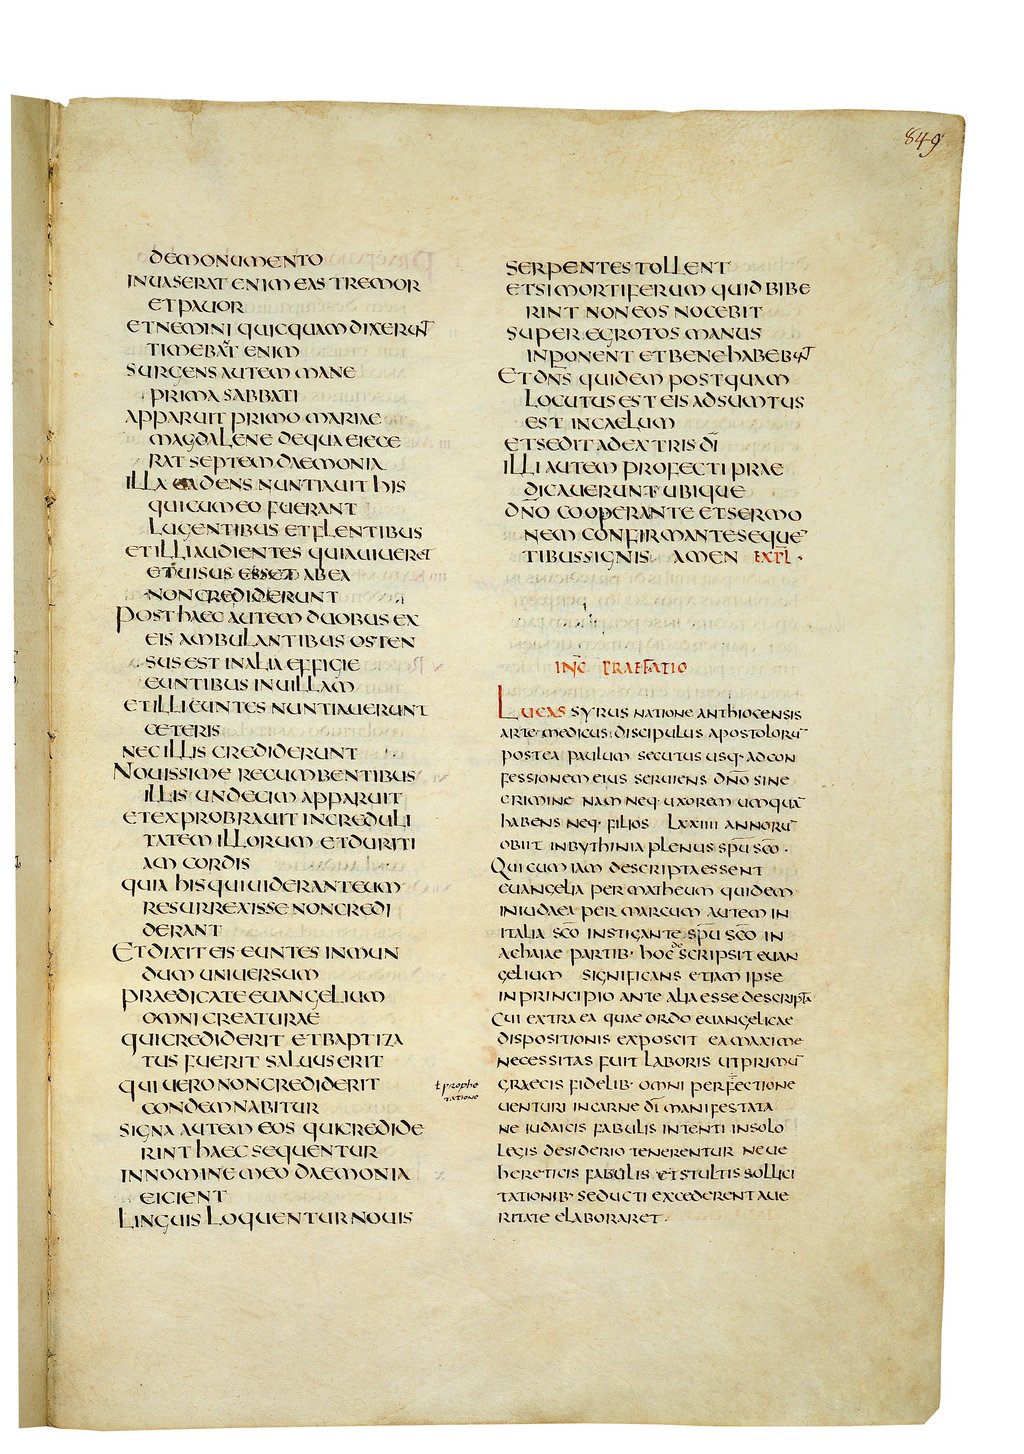 849
de monumento
inuaserat enim eas tremor
et pauor
et nemini quicquam dixerunt
timebāt enim
surgens autem mane
prima sabbati
apparuit primo mariae
magdalene de qua eiece
rat septem daemonia
illa uadens nuntiauit his
qui cum eo fuerant
lugentibus et flentibus
et illi audientes quia uiueret
et uisus esset ab ea
non crediderunt
Post haec autem duobus ex
eis ambulantibus osten
sus est in alia effigie
euntibus in uillam
et illi euntes nuntiauerunt
ceteris
nec illis crediderunt
Nouissime recumbentibus
illis undecim apparuit
et exprobrauit increduli
tatem illorum et duriti
am cordis
quia his qui uiderant eum
resurrexisse non credi
derant
Et dixit eis euntes in mun
dum uniuersum
praedicate euangelium
omni creaturae
qui crediderit et baptiza
tus fuerit saluus erit
qui uero non crediderit
condemnabitur
signa autem eos qui credide
rint haec sequentur
in nomine meo daemonia
eicient
Linguis loquentur nouis
serpentes tollent
et si mortiferum quid bibe
rint non eos nocebit
super egrotos manus
inponent et bene habebunt
Et dn̄s quidem postquam
locutus est eis adsumtus
est in caelum
et sedit a dextris dī
illi autem profecti prae
dicauerunt ubique
dn̄o cooperante et sermo
nem confirmante seque
tibus signis amen expl·
inc̄ praefatio
Lucas syrus natione anthiocensis
arte medicus discipulus apostoloru¯
postea paulum secutus usq· ad con
fessionem eius seruiens dn̄o sine
crimine nam neq· uxorem umquā
habens neq· filios lxxiiii annoru¯
obiit in bythinia plenus sp̄u sc̄o·
Qui cum iam descripta essent
euangelia per matheum quidem
in iudaea per marcum autem in
italia sc̄o instigante sp̄u sc̄o in
achaiae partib· hoc descripsit euan
gelium significans etiam ipse
in principio ante alia esse descripta
Cui extra ea quae ordo euangelicae
dispositionis exposcit ea maxime
necessitas fuit laboris ut primu¯
graecis fidelib· omni perfectione
ł prophe
tatione
uenturi in carne dī manifestata
ne iudaicis fabulis intenti in solo
legis desiderio tenerentur neue
hereticis fabulis et stultis sollici
tationib· seducti excederent a ue
ritate elaboraret·